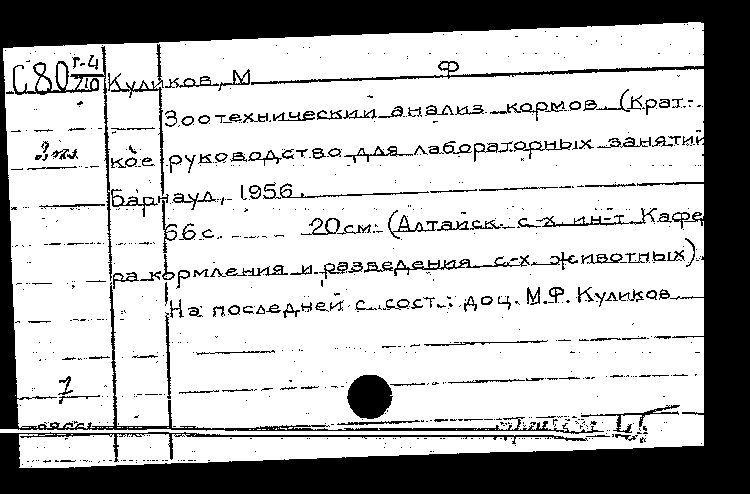 С80 Г-4/710 Куликов, М Ф
Зоотехнический анализ кормов. (Крат-
2 экз. кое руководство для лабораторных занятий
Барнаул, 1956.
66с. 20см. (Алтайск. с-х. ин-т. Кафе
ра кормления и разведения с.-х. животных).
На последней с сост.: доц. М.Ф. Куликов
7